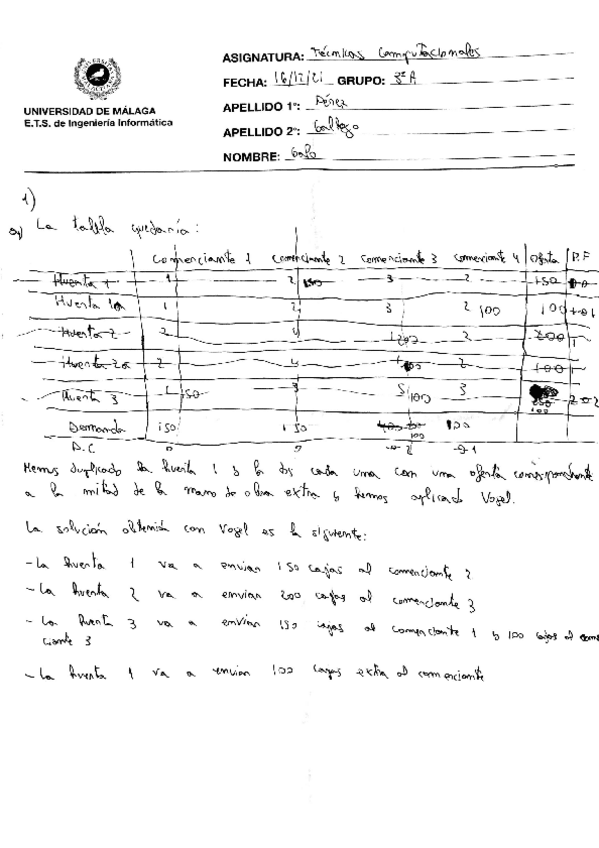 ASIGNATURA: Técnicas Computacionales
FECHA: 16/12/21 GRUPO: 3ºA
APELLIDO 1º: Pérez
APELLIDO 2º: Gallego
NOMBRE: Galo
UNIVERSIDAD DE MÁLAGA
E.T.S. de Ingeniería Informática
1)
a) La tabla quedaría:
Comerciante 1 Comerciante 2 Comerciante 3 Comerciante 4 Oferta P.F
Huerta 1 1 2 150 3 2 150
Huerta 1a 1 2 3 2 100 100
Huerta 2 2 4 1 200 2 200
Huerta 2a 2 4 2 100
Huerta 3 1 150 3 5 100 3 250 100
Demanda 150 150 100 100
P.C
Hemos duplicado la huerta 1 y la dos cada una con una oferta correspondiente
a la mitad de la mano de obra extra y hemos aplicado Vogel.
La solución obtenida con Vogel es la siguiente:
- La huerta 1 va a enviar 150 cajas al comerciante 2
- La huerta 2 va a enviar 200 cajas al comerciante 3
- La huerta 3 va a enviar 150 cajas al comerciante 1 y 100 cajas al comer
ciante 3
- La huerta 1 va a enviar 100 cajas extra al comerciante